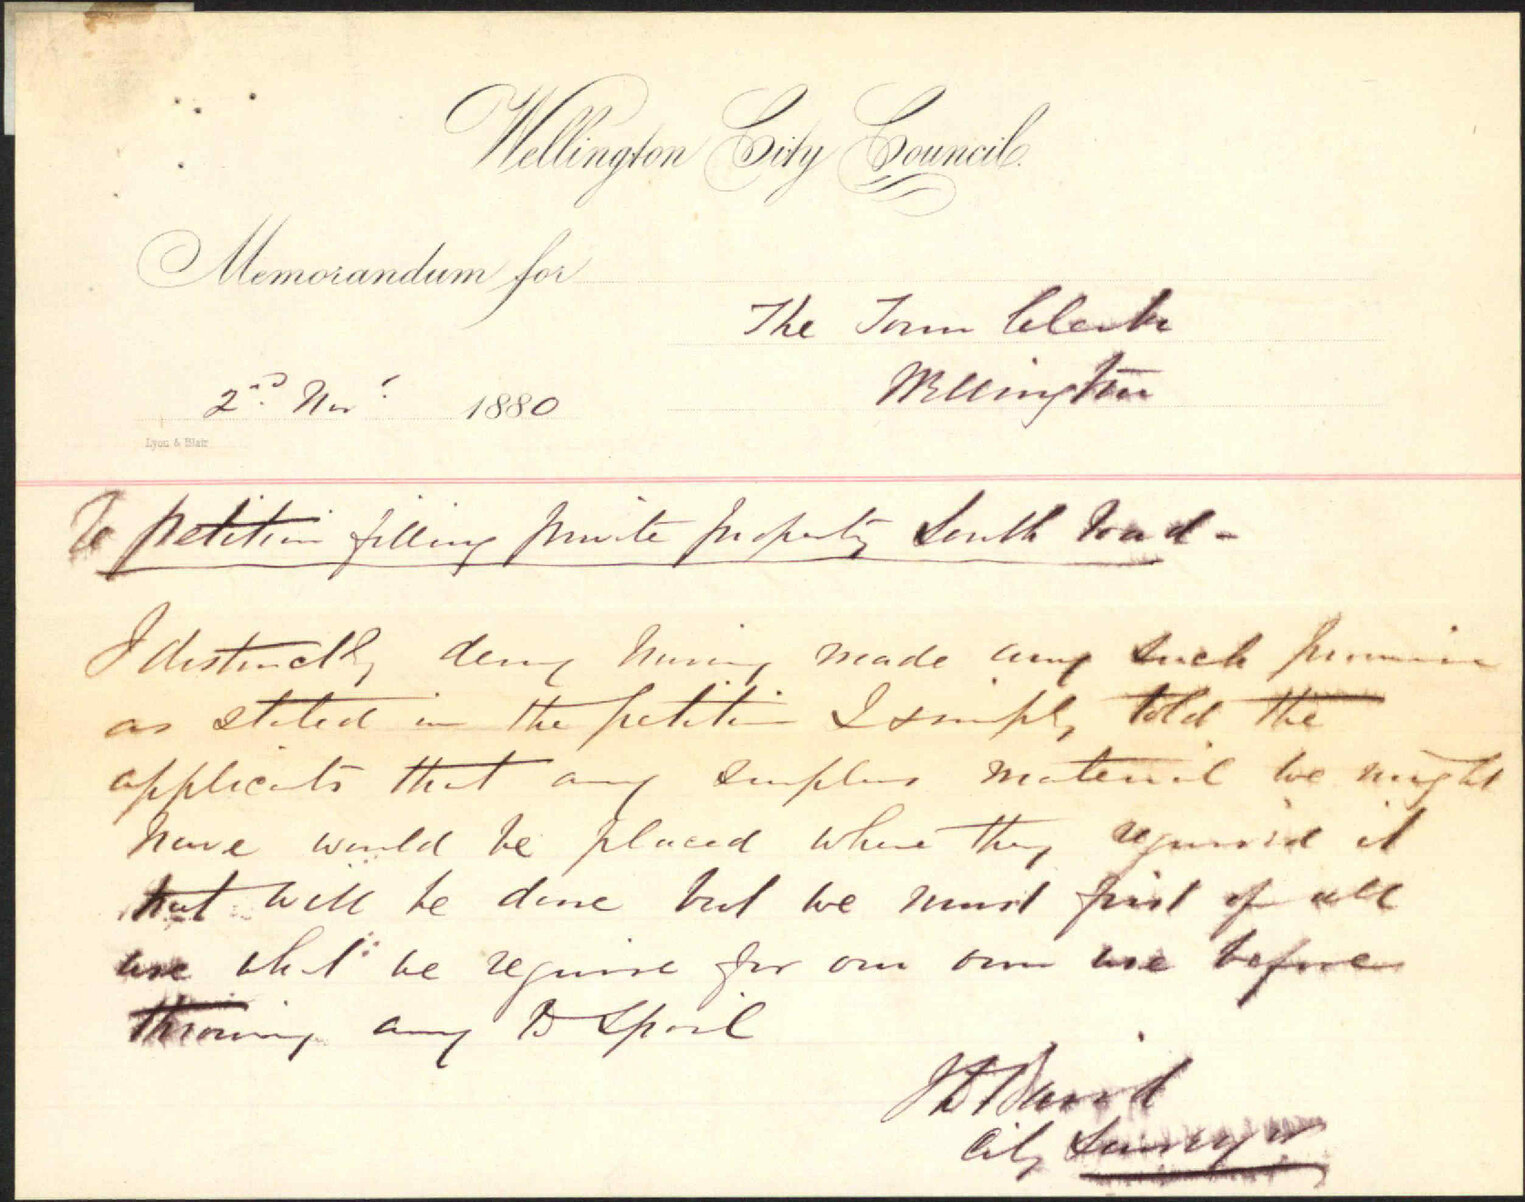 Wellington City Council.
Memorandum for
The Town Clerk
Wellington
2nd. Nov. 1880
Lyon & Blair
Re petition filling private property South Road -
I distinctly deny having made any such promise
as stated in the petition I simply told the
applicats that any surplus material we might
have would be placed where they required it
that will be done but we must first of all
use what we require for our own use before
throwing any to spoil
J D Baird
City Surveyor